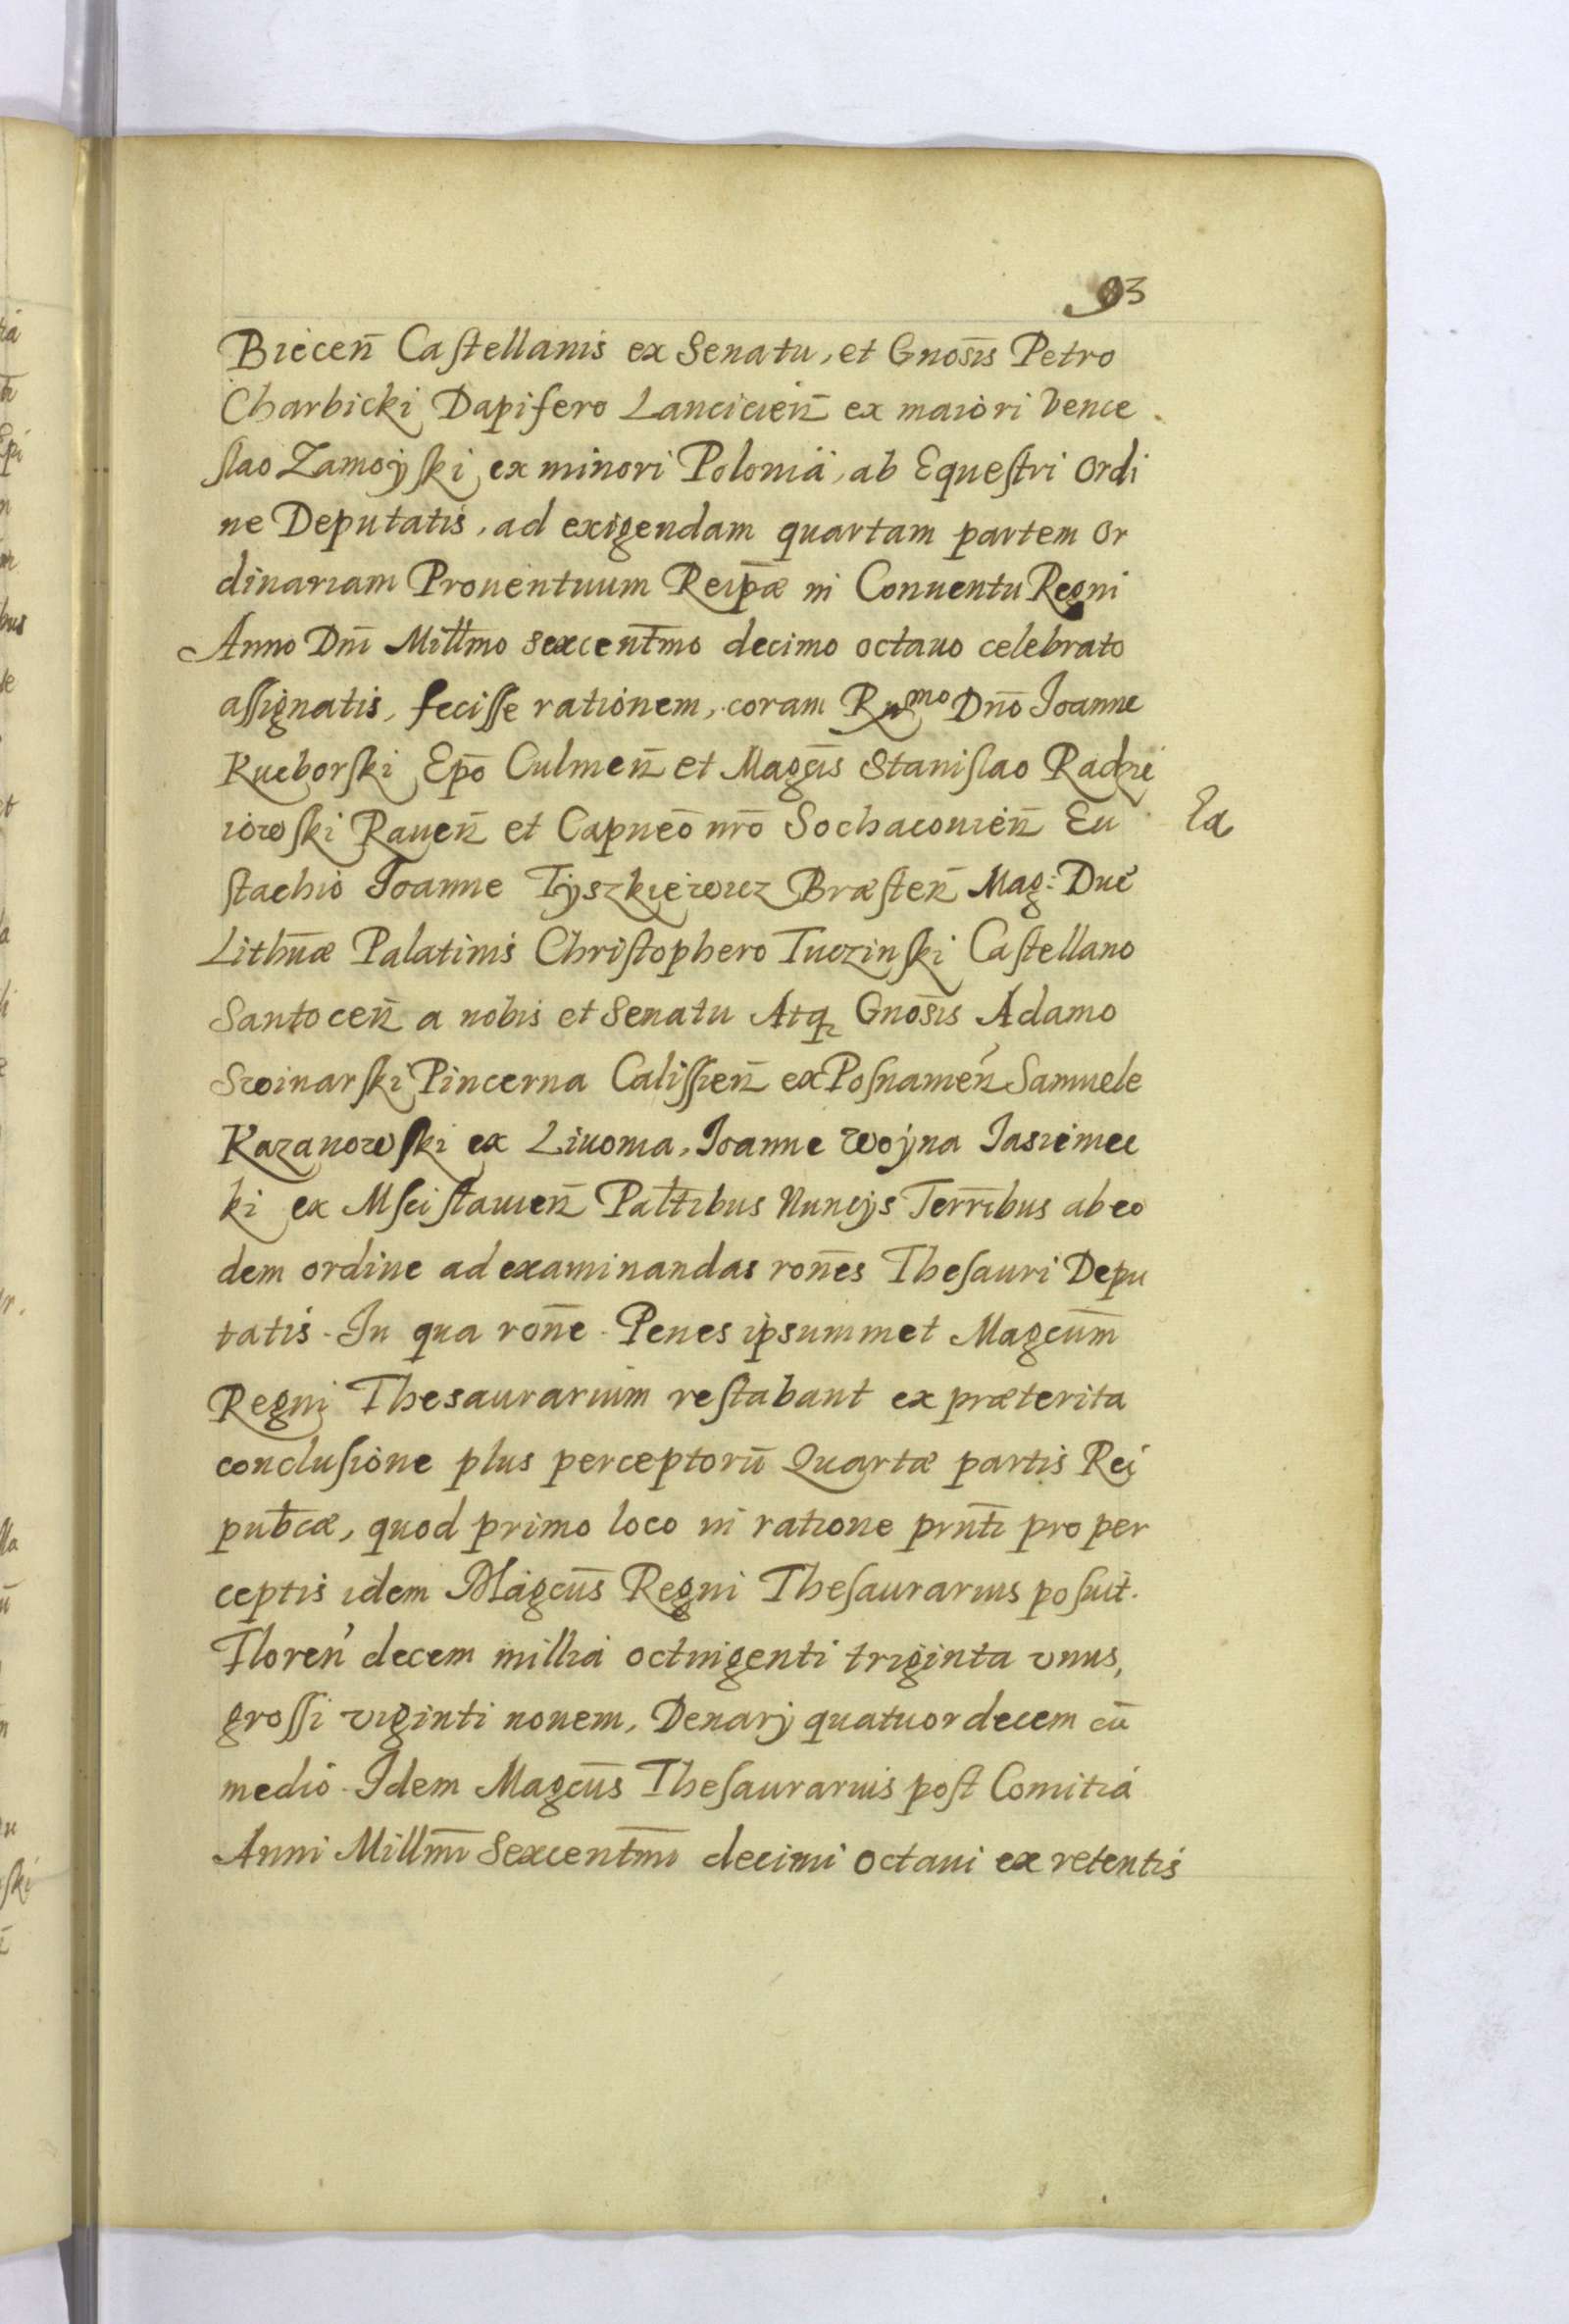 93
Biecen̄ Castellanis ex Senatu, et Gnosīs Petro
Charbicki Dapifero Lancicien̄ ex maiori Vence
slao Zamoÿski ex minori Poloniä, ab Equestri Ordi
ne Deputatis, ad exigendam quartam partem Or
dinariam Prouentuum Reip̄æ in Conuentu Regni
Anno Dnī Millm̄o sexcentm̄o decimo octauo celebrato
assignatis, fecisse rationem, coram Rn̄mo Dnō Joanne
Kucborski Epō Culmen̄ et Magc̄is Stanislao Radzie
iowski Rauen̄ et Capneō nrō Sochaconien̄ Eu
stachio Joanne Tÿszkiewicz Bræsten̄ Mag: Duc
Lithn̄æ Palatinis Christophero Tuczinski Castellano
Santocen̄ a nobis et Senatu Atq Gnosīs Adamo
Swinarski Pincerna Calissien̄ ex Posnanień Samuele
Kazanowski ex Liuonia, Joanne Woÿna Jasieniec
ki ex Mscislauien̄ Palt̄ibus Nuncÿs Terrībus ab eo
dem ordine ad examinandas ron̄es Thesauri Depu
tatis. In qua ron̄e. Penes ipsummet Magcum̄
Regni Thesaurarium restabant ex præterita
conclusione plus perceptorū Quartæ partis Rei
pub̄cæ, quod primo loco in ratione prntī pro per
ceptis idem Magcūs Regni Thesaurarius posuit.
Floren' decem millia octingenti triginta vnus,
grossi viginti nonem, Denarÿ quatuordecem cū
medio. Idem Magcūs Thesaurarius post Comitia
Anni Millm̄i Sexcentm̄i decimi octaui ex retentis